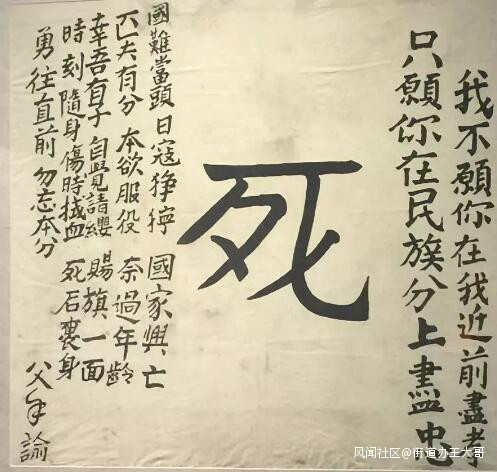 我不願你在我近前盡孝
只願你在民族分上盡忠
死
國難當頭 日寇狰獰 國家興亡
匹夫有分 本欲服役 奈過年齡
幸吾有子 自覺請纓 賜旗一面
時刻隨身 傷時拭血 死后裹身
勇往直前 勿忘本分
父手諭
风闻社区@街道办王大哥